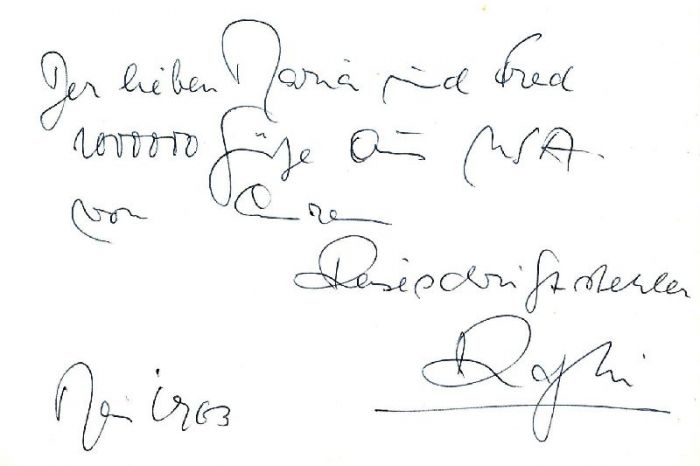 Der lieben Maria und Fred
1000000 Grüße aus USA.
von Eurem
Reiseschriftsteller
Mai 1963